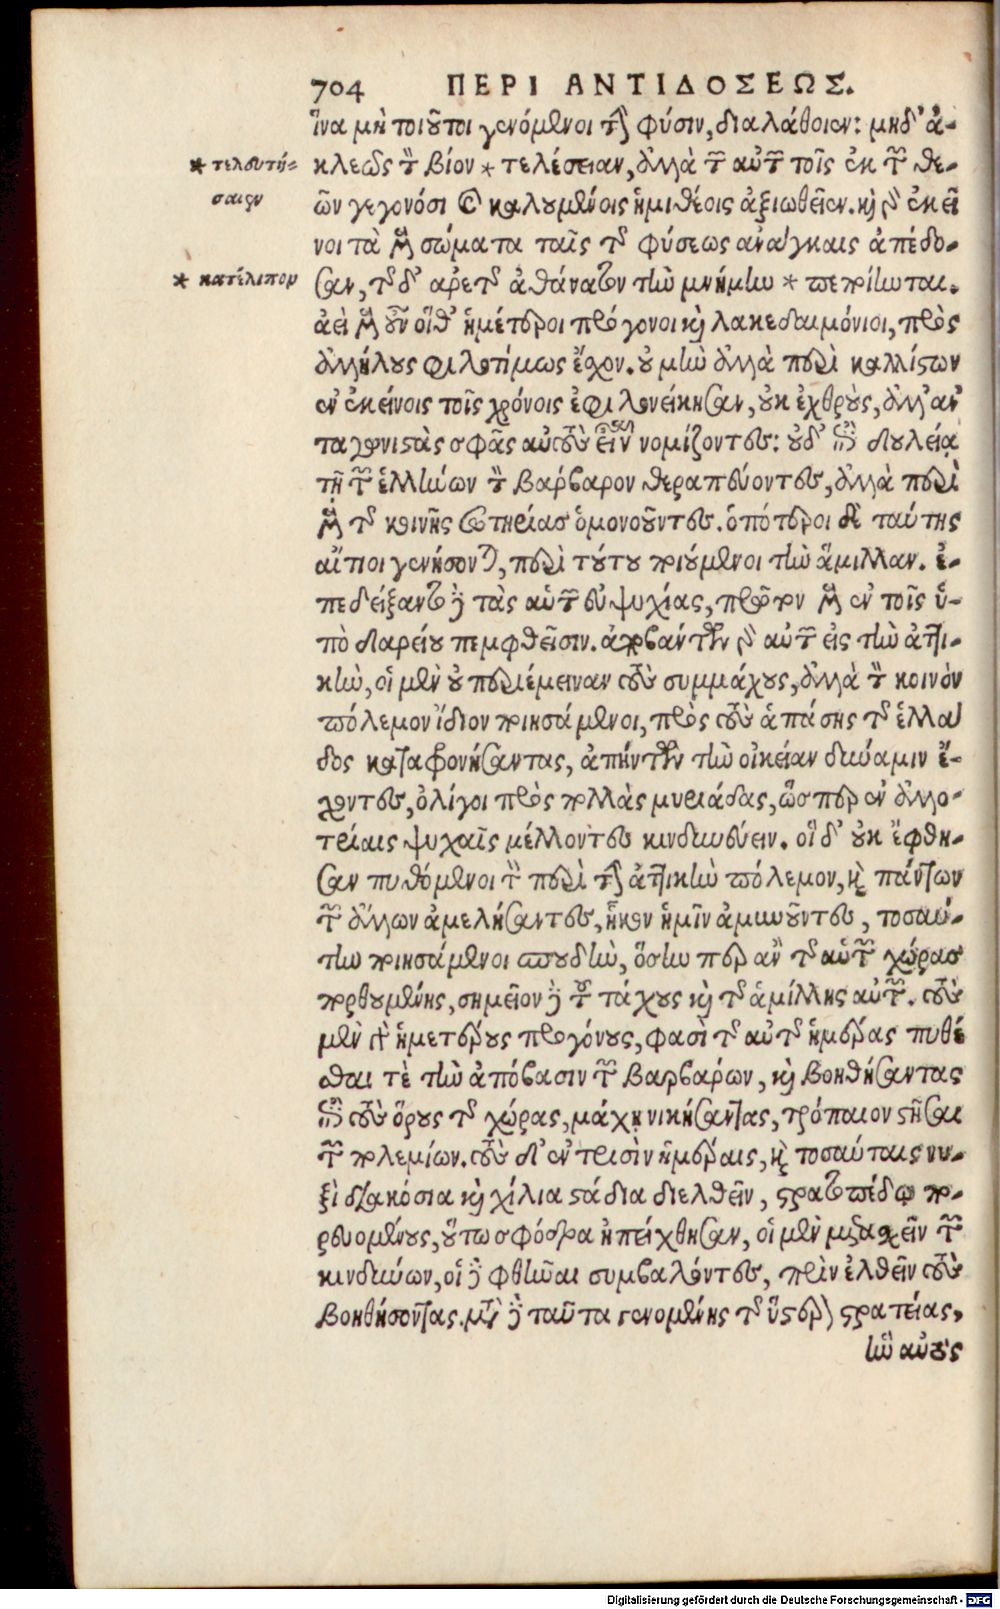 704 ΠΕΡΙ ΑΝΤΙΔΟΣΕΩΣ.
ἵνα μὴ τοιοῦτοι γενόμενοι τὴν φύσιν, διαλάθοιεν: μηδ' ἀ-
* τελευτή-
σαιεν
κλεῶς τὸν βίον * τελέσειαν, ἀλλὰ τῶν αὐτῶν τοῖς ἐκ τῶν θε-
ῶν γεγονόσι καὶ καλουμένοις ἡμιθέοις ἀξιωθεῖεν. καὶ γὰρ ἐκεῖ
νοι τὰ μὲν σώματα ταῖς τῆς φύσεως ἀνάγκαις ἀπέδο-
* κατέλιπον
σαν, τῆς δ' ἀρετῆς ἀθάνατον τὴν μνήμην * πεποίηνται.
ἀεὶ μὲν οὖν οἵθ' ἡμέτεροι πρόγονοι καὶ λακεδαιμόνιοι, πρὸς
ἀλλήλους φιλοτίμως ἔχον. οὐ μὴν ἀλλὰ περὶ καλλίστων
ἐν ἐκείνοις τοῖς χρόνοις ἐφιλονείκησαν, οὐκ ἐχθροὺς, ἀλλ' ἀν
ταγωνιστὰς σφᾶς αὐτοὺς εἶναι νομίζοντες: οὐδ' ἐπὶ δουλείᾳ
τῇ τῶν ἑλλήνων τὸν βάρβαρον θεραπεύοντες, ἀλλὰ περὶ
μὲν τῆς κοινῆς σωτηρίας ὁμονοοῦντες. ὁπότεροι δὲ ταύτης
αἴτιοι γενήσονται, περὶ τούτου ποιούμενοι τὴν ἅμιλλαν. ἐ-
πεδείξαντο δὲ τὰς αὑτῶν εὐψυχίας, πρῶτον μὲν ἐν τοῖς ὑ-
πὸ δαρείου πεμφθεῖσιν. ἀποβάντων γὰρ αὐτῶν εἰς τὴν ἀττι-
κὴν, οἱ μὲν οὐ περιέμειναν τοὺς συμμάχους, ἀλλὰ τὸν κοινὸν
πόλεμον ἴδιον ποιησάμενοι, πρὸς τοὺς ἁπάσης τῆς ἑλλά
δος καταφρονήσαντας, ἀπήντων τὴν οἰκείαν δύναμιν ἔ-
χοντες, ὀλίγοι πρὸς πολλὰς μυριάδας, ὥσπερ ἐν ἀλλο-
τρίαις ψυχαῖς μέλλοντες κινδυνεύειν. οἱ δ' οὐκ ἔφθη-
σαν πυθόμενοι τὸν περὶ τὴν ἀττικὴν πόλεμον, καὶ πάντων
τῶν ἄλλων ἀμελήσαντες, ἧκον ἡμῖν ἀμυνοῦντες, τοσαύ-
την ποιησάμενοι σπουδὴν, ὅσην περ ἂν τῆς αὑτῶν χώρας
πορθουμένης, σημεῖον δὲ τοῦ τάχους καὶ τῆς ἁμίλλης αὐτῶν. τοὺς
μὲν γὰρ ἡμετέρους προγόνους, φασὶ τῆς αὐτῆς ἡμέρας πυθέ
σθαι τὲ τὴν ἀπόβασιν τῶν βαρβάρων, καὶ βοηθήσαντας
ἐπὶ τοὺς ὅρους τῆς χώρας, μάχῃ νικήσαντας, τρόπαιον στῆσαι
τῶν πολεμίων. τοὺς δ' ἐν τρισὶν ἡμέραις, καὶ τοσαύταις νυ-
ξὶ διακόσια καὶ χίλια στάδια διελθεῖν, στρατοπέδῳ πο-
ρευομένους, οὕτω σφόδρα ἠπείχθησαν, οἱ μὲν μετασχεῖν τῶν
κινδύνων, οἱ δὲ φθῆναι συμβαλόντες, πρὶν ἐλθεῖν τοὺς
βοηθήσοντας. μετὰ δὲ ταῦτα γενομένης τῆς ὕστερον στρατείας,
ἣν αὐτὸς
Digitalisierung gefördert durch die Deutsche Forschungsgemeinschaft - DFG